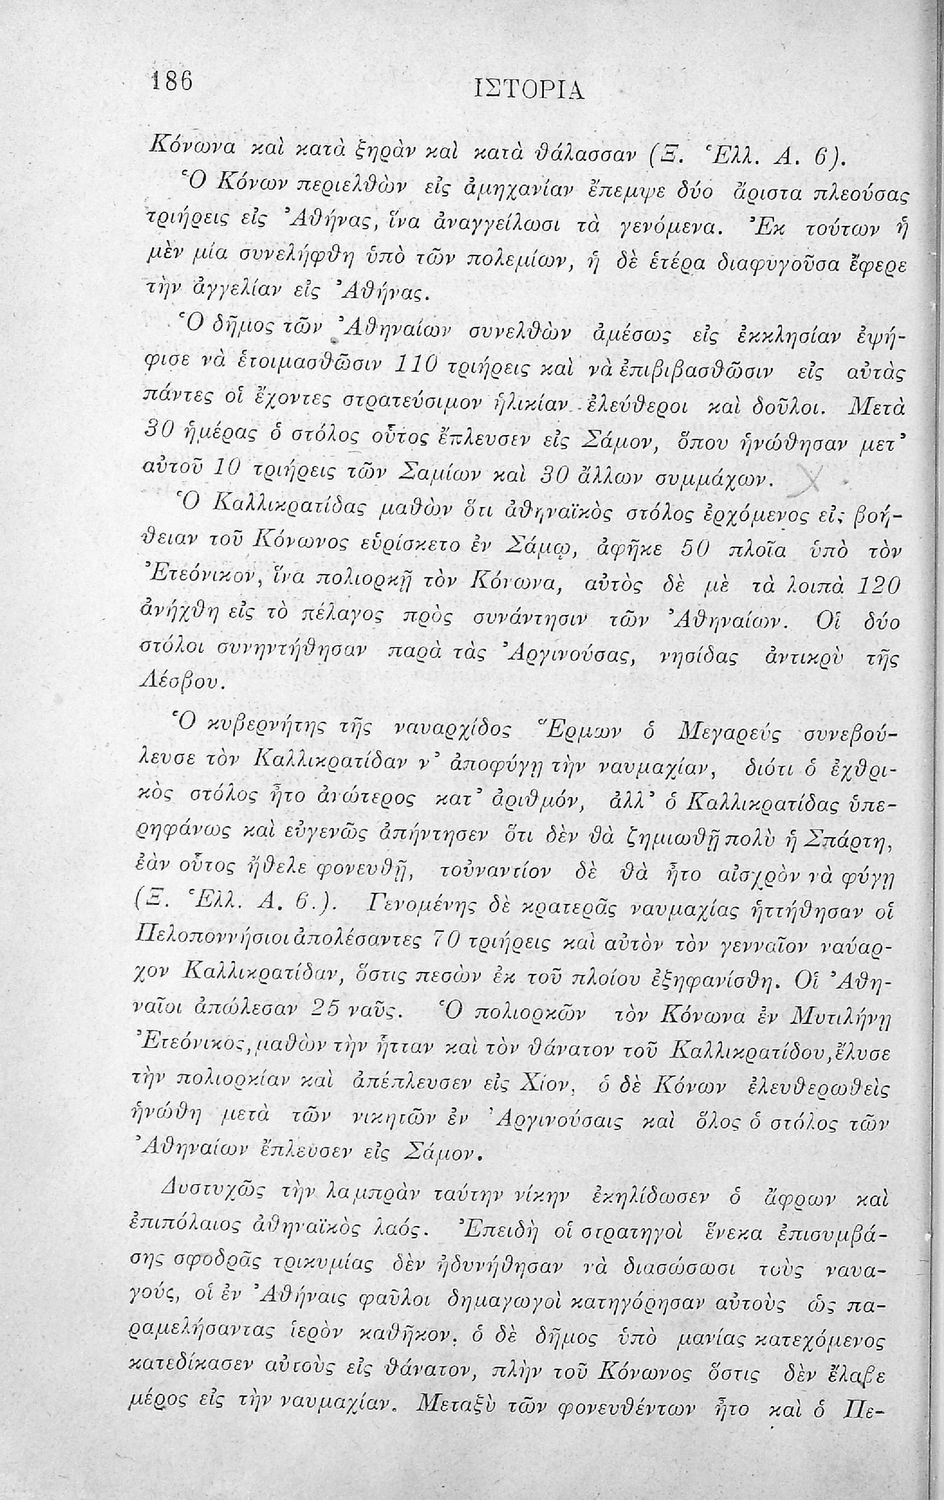 186
ΙΣΤΟΡΙΑ
Κόνωνα καὶ κατὰ ξηρὰν καὶ κατὰ θάλασσαν (Ξ. Ἑλλ. Α. 6).
Ὁ Κόνων περιελθὼν εἰς ἀμηχανίαν ἔπεμψε δύο ἄριστα πλεούσας
τριήρεις εἰς Ἀθήνας, ἵνα ἀναγγείλωσι τὰ γενόμενα. Ἐκ τούτων ἡ
μὲν μία συνελήφθη ὑπὸ τῶν πολεμίων, ἡ δὲ ἑτέρα διαφυγοῦσα ἔφερε
τὴν ἀγγελίαν εἰς Ἀθήνας.
Ὁ δῆμος τῶν Ἀθηναίων συνελθὼν ἀμέσως εἰς ἐκκλησίαν ἐψή-
φισε νὰ ἑτοιμασθῶσιν 110 τριήρεις καὶ νὰ ἐπιβιβασθῶσιν εἰς αὐτὰς
πάντες οἱ ἔχοντες στρατεύσιμον ἡλικίαν ἐλεύθεροι καὶ δοῦλοι. Μετὰ
30 ἡμέρας ὁ στόλος οὗτος ἔπλευσεν εἰς Σάμον, ὅπου ἡνώθησαν μετ'
αὐτοῦ 10 τριήρεις τῶν Σαμίων καὶ 30 ἄλλων συμμάχων.
Ὁ Καλλικρατίδας μαθὼν ὅτι ἀθηναϊκὸς στόλος ἐρχόμενος εἰς βοή-
θειαν τοῦ Κόνωνος εὑρίσκετο ἐν Σάμῳ, ἀφῆκε 50 πλοῖα ὑπὸ τὸν
Ἐτεόνικον, ἵνα πολιορκῇ τὸν Κόνωνα, αὐτὸς δὲ μὲ τὰ λοιπὰ 120
ἀνήχθη εἰς τὸ πέλαγος πρὸς συνάντησιν τῶν Ἀθηναίων. Οἱ δύο
στόλοι συνηντήθησαν παρὰ τὰς Ἀργινούσας, νησίδας ἀντικρὺ τῆς
Λέσβου.
Ὁ κυβερνήτης τῆς ναυαρχίδος Ἕρμων ὁ Μεγαρεύς συνεβού-
λευσε τὸν Καλλικρατίδαν ν' ἀποφύγῃ τὴν ναυμαχίαν, διότι ὁ ἐχθρι-
κὸς στόλος ἦτο ἀνώτερος κατ' ἀριθμόν, ἀλλ' ὁ Καλλικρατίδας ὑπε-
ρηφάνως καὶ εὐγενῶς ἀπήντησεν ὅτι δὲν θὰ ζημιωθῇ πολὺ ἡ Σπάρτη,
ἐὰν οὗτος ἤθελε φονευθῇ, τοὐναντίον δὲ θὰ ἦτο αἰσχρὸν νὰ φύγῃ
(Ξ. Ἑλλ. Α. 6.). Γενομένης δὲ κρατερᾶς ναυμαχίας ἡττήθησαν οἱ
Πελοποννήσιοι ἀπολέσαντες 70 τριήρεις καὶ αὐτὸν τὸν γενναῖον ναύαρ-
χον Καλλικρατίδαν, ὅστις πεσὼν ἐκ τοῦ πλοίου ἐξηφανίσθη. Οἱ Ἀθη-
ναῖοι ἀπώλεσαν 25 ναῦς. Ὁ πολιορκῶν τὸν Κόνωνα ἐν Μυτιλήνῃ
Ἐτεόνικος, μαθὼν τὴν ἧτταν καὶ τὸν θάνατον τοῦ Καλλικρατίδου, ἔλυσε
τὴν πολιορκίαν καὶ ἀπέπλευσεν εἰς Χίον, ὁ δὲ Κόνων ἐλευθερωθεὶς
ἡνώθη μετὰ τῶν νικητῶν ἐν Ἀργινούσαις καὶ ὅλος ὁ στόλος τῶν
Ἀθηναίων ἔπλευσεν εἰς Σάμον.
Δυστυχῶς τὴν λαμπρὰν ταύτην νίκην ἐκηλίδωσεν ὁ ἄφρων καὶ
ἐπιπόλαιος ἀθηναϊκὸς λαός. Ἐπειδὴ οἱ στρατηγοὶ ἕνεκα ἐπισυμβά-
σης σφοδρᾶς τρικυμίας δὲν ἠδυνήθησαν νὰ διασώσωσι τοὺς ναυα-
γούς, οἱ ἐν Ἀθήναις φαῦλοι δημαγωγοὶ κατηγόρησαν αὐτοὺς ὡς πα-
ραμελήσαντας ἱερὸν καθῆκον, ὁ δὲ δῆμος ὑπὸ μανίας κατεχόμενος
κατεδίκασεν αὐτοὺς εἰς θάνατον, πλὴν τοῦ Κόνωνος ὅστις δὲν ἔλαβε
μέρος εἰς τὴν ναυμαχίαν. Μεταξὺ τῶν φονευθέντων ἦτο καὶ ὁ Πε-